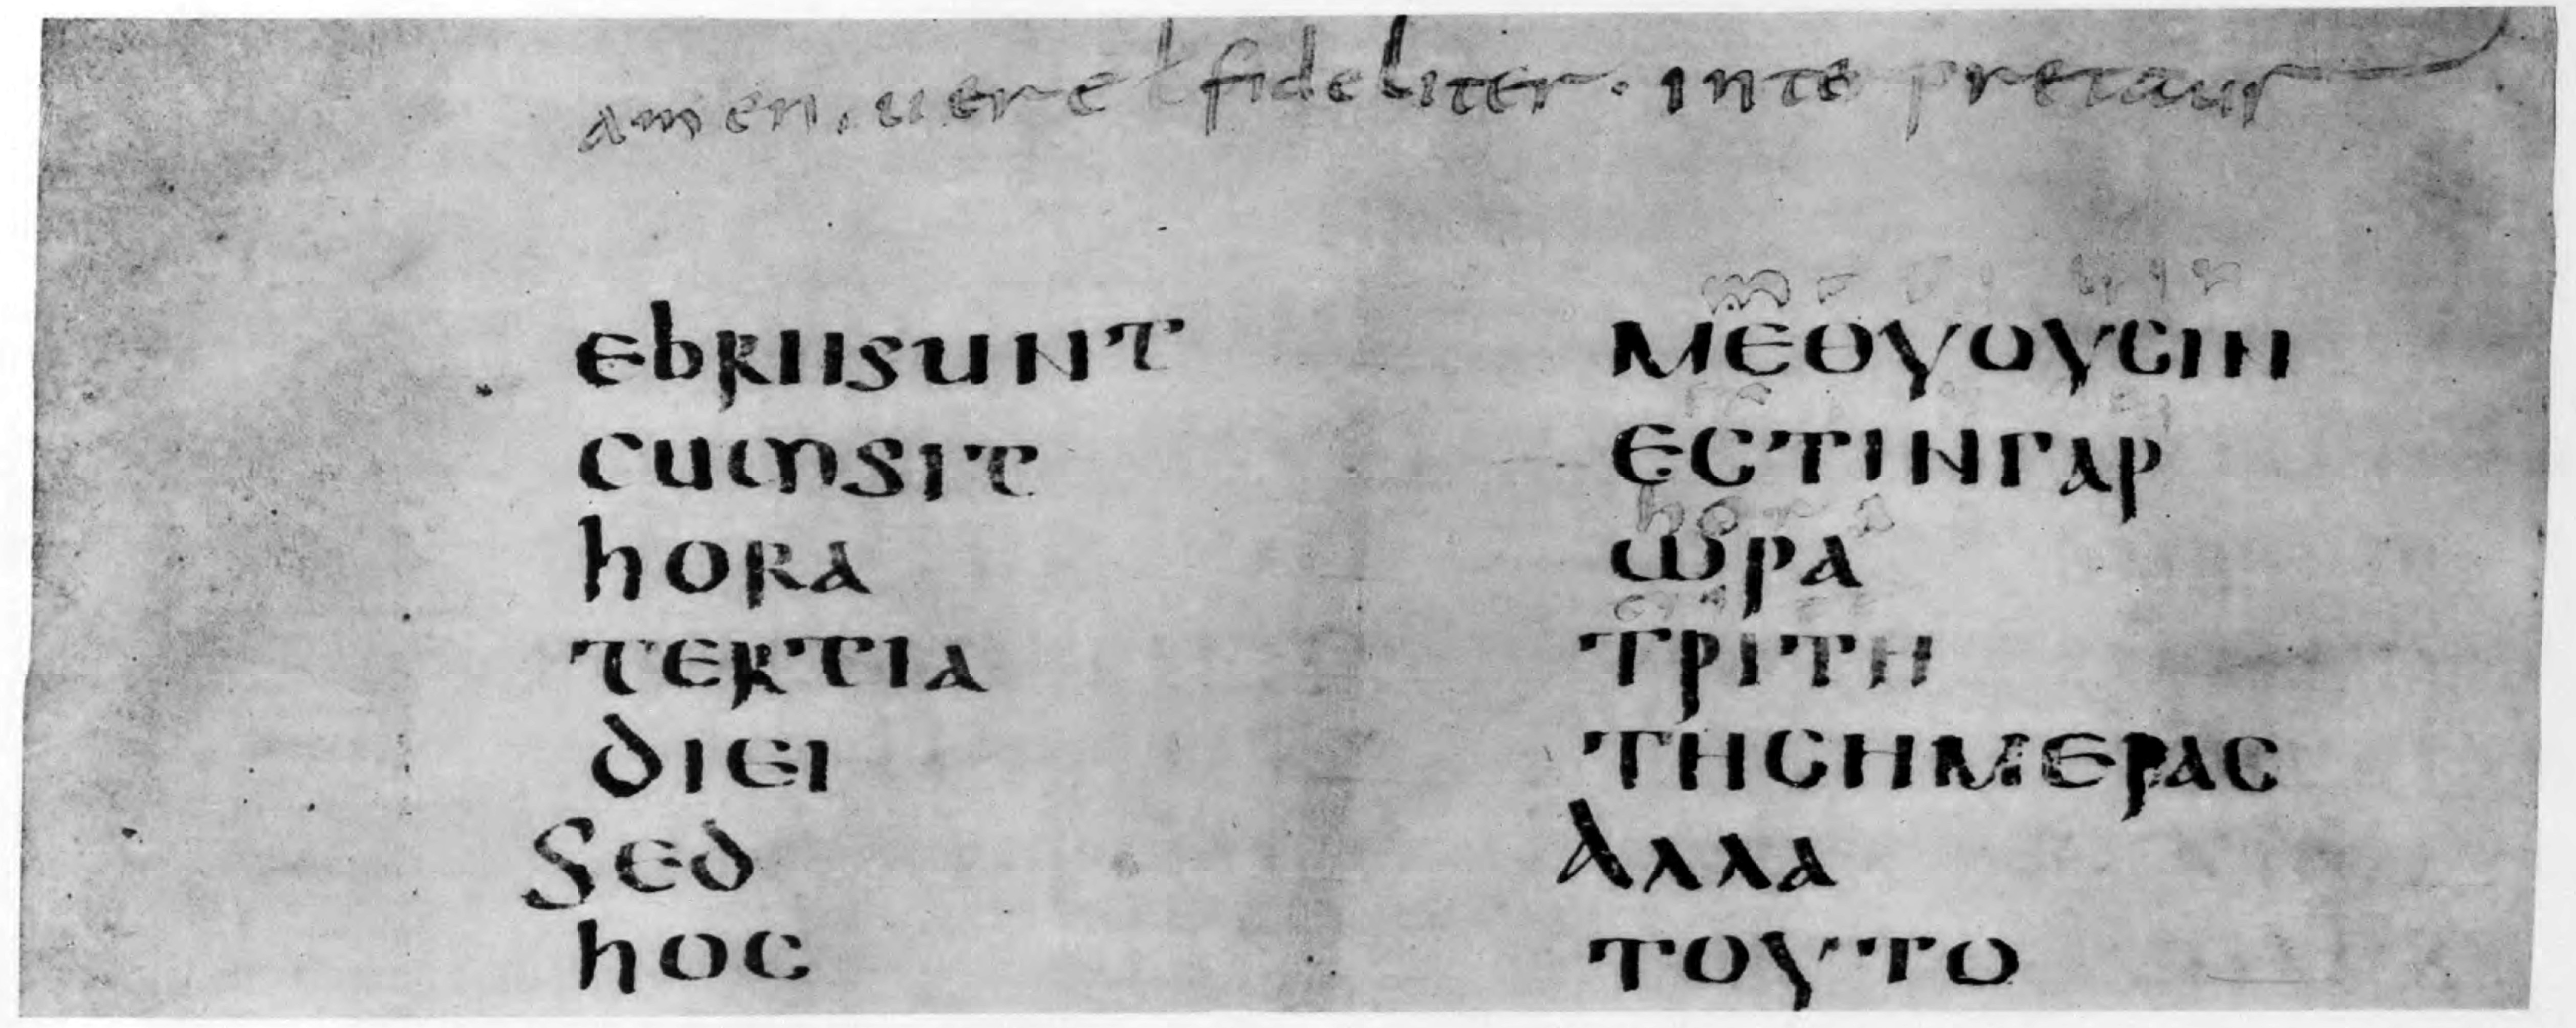 amen. uere l fideliter. inte pretaur
EbRIISUNT ΜΕΘΥΟΥϹΙΝ
CUMSIT ΕϹΤΙΝΓΑΡ
hora
hORA ΩΡΑ
TERTIA ΤΡΙΤΗ
DIEI ΤΗϹΗΜΕΡΑϹ
SED ΑΛΛΑ
hOC ΤΟΥΤΟ